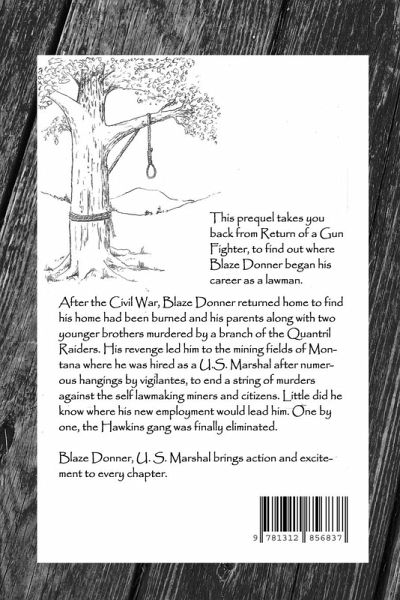 This prequel takes you
back from Return of a Gun
Fighter, to find out where
Blaze Donner began his
career as a lawman.
After the Civil War, Blaze Donner returned home to find
his home had been burned and his parents along with two
younger brothers murdered by a branch of the Quantril
Raiders. His revenge led him to the mining fields of Mon-
tana where he was hired as a U.S. Marshal after numer-
ous hangings by vigilantes, to end a string of murders
against the self lawmaking miners and citizens. Little did he
know where his new employment would lead him. One by
one, the Hawkins gang was finally eliminated.
Blaze Donner, U. S. Marshal brings action and excite-
ment to every chapter.
9 781312 856837